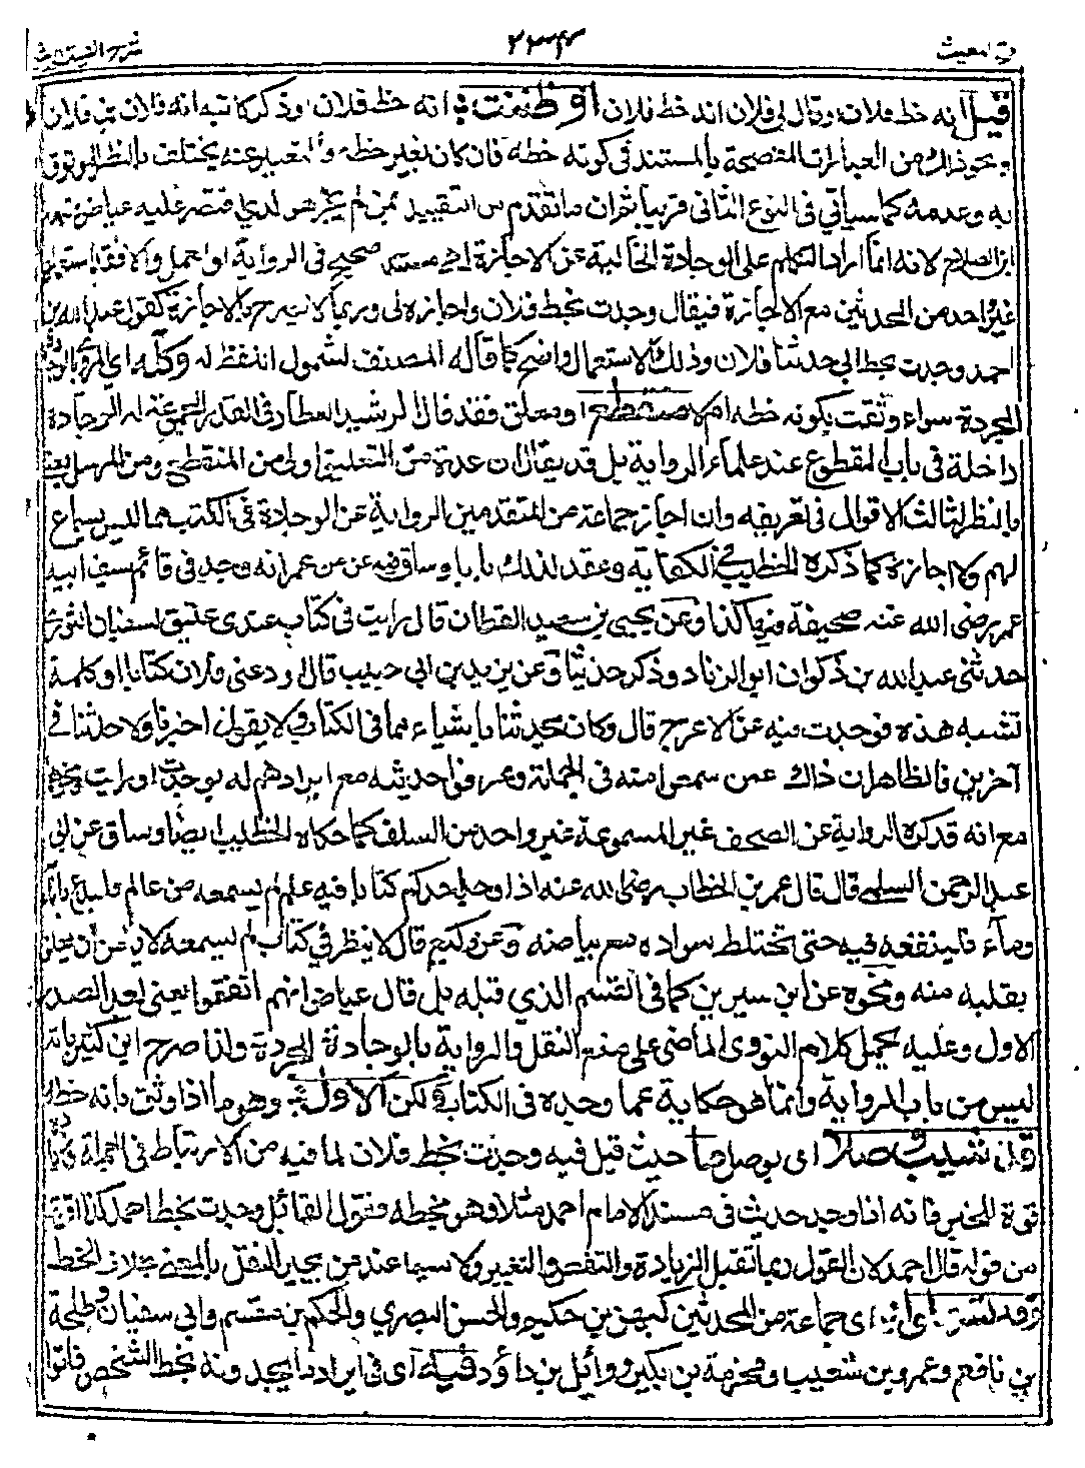 فتح المغيث
٢٣٤
شرح الفية الحديث
قيل انه خط فلان وقال لى فلان انه خط فلان او ظننت انه خط فلان وذكر كاتبه انه فلان بن فلان
ونحو ذلك من العبارات المفصحة بالمستند فى كونه خطه فان كان بغير خطه فالتعبير عنه يختلف بالنظر للوثوق
به وعدمه كما سيأتي فى النوع الثانى قريبا ثم ان ما تقدم من التقييد بمن لم يجز هو الذي اقتصر عليه عياض وتبعه
ابن الصلاح لانه انما أراد التكلم على الوجادة الخالية عن الاجازة اهى مستند صحيح فى الرواية او العمل والا فقد استعملها
غير واحد من المحدثين مع الاجازة فيقال وجدت بخط فلان واجازه لى وربما لا يصرح بالاجازة كقول عبد الله بن
احمد وجدت بخط ابى حدثنا فلان وذلك الاستعمال واضح كما قاله المصنف لشمول اللفظ له وكله اى المروى بالوجادة
المجردة سواء وثقت بكونه خطه ام لا منقطع او معلق فقد قال الرشيد العطار فى الغرر المجموعة له الوجادة
داخلة فى باب المقطوع عند علماء الرواية بل قد يقال ان عده من التعليق اولى من المنقطع ومن المرسل يعنى
بالنظر لثالث الاقوال فى تعريفه وان اجاز جماعة من المتقدمين الرواية عن الوجادة فى الكتب مما ليس بسماع
لهم ولا اجازة كما ذكره الخطيب في الكفاية وعقد لذلك بابا وساق فيه عن ابن عمر انه وجد فى قائم سيف ابيه
عمر رضى الله عنه صحيفة فيها كذا وعن يحيى بن سعيد القطان قال رايت فى كتاب عندى عتيق لسفيان الثوري
حدثنى عبد الله بن ذكوان ابو الزناد وذكر حديثا وعن يزيد بن ابى حبيب قال اودعنى فلان كتابا او كلمة
تشبه هذه فوجدت فيه عن الاعرج قال وكان يحدثنا باشياء مما فى الكتاب ولا يقول اخبرنا ولا حدثنا في
آخرين فالظاهر ان ذلك عمن سمعوا منه فى الجملة وعرفوا حديثه مع ايرادهم له بوجدت او رايت ونحوها
مع انه قد كره الرواية عن الصحف غير المسموعة غير واحد من السلف كما حكاه الخطيب ايضا وساق عن ابى
عبد الرحمن السلمي قال قال عمر بن الخطاب رضى الله عنه اذا وجد احدكم كتابا فيه علم لم يسمعه من عالم فليدع باناء
وماء فلينقعه فيه حتى يختلط سواده مع بياضه وعن وكيع قال لا ينظر في كتاب لم يسمعه لا يأمن أن يعلق
بقلبه منه ونحوه عن ابن سيرين كما فى القسم الذي قبله بل قال عياض انهم اتفقوا يعنى بعد الصدر
الاول وعليه يحمل كلام النووى الماضى على منع النقل والرواية بالوجادة المجردة ولذا صرح ابن كثير بانه
ليس من باب الرواية وانما هو حكاية عما وجده فى الكتاب ولكن الاول وهو ما اذا وثق بانه خطه
قد شيب وصلا اى بوصل ما حيث قيل فيه وجدت بخط فلان لما فيه من الارتباط فى الجملة
قوة للخبر فانه اذا وجد حديث فى مسند الامام احمد مثلا وهو بخطه فقول القائل وجدت بخط احمد كذا اقوى
من قوله قال احمد لان القول ربما تقبل الزيادة والنقص والتغيير ولا سيما عند من يجيز النقل بالمعنى بخلاف الخط
وقد تسهل اى جماعة من المحدثين كبهز بن حكيم والحسن البصري والحكم بن مقسم وابى سفيان وطلحة
بن نافع وعمرو بن شعيب ومخرمة بن بكير ووائل بن داؤد فيه اى فى ايراد ما يجدونه بخط الشخص فاتوا